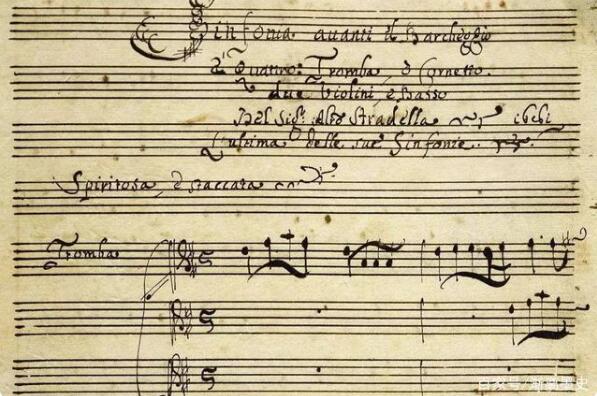 Sinfonia avanti il Barcheggio
à Quattro: Tromba, ò Cornetto.
due Violini, e Basso
Del Sigr. Aldo Stradella
l'ultima delle sue Sinfonie.
Spiritosa, è staccata
Tromba
百家号/